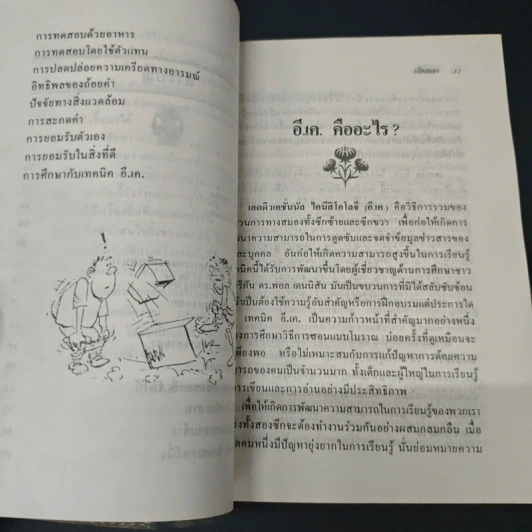 การทดสอบด้วยอาหาร
การทดสอบโดยใช้ตัวแทน
การปลดปล่อยความเครียดทางอารมณ์
อิทธิพลของถ้อยคำ
ปัจจัยทางสิ่งแวดล้อม
การสะกดคำ
การยอมรับตัวเอง
การยอมรับในสิ่งที่ดี
การศึกษากับเทคนิค อี.เค.
!
อี.เค. คืออะไร ?
เอดดิวเคชั่นนัล ไคนีสิโอโลจี (อี.เค.) คือวิธีการรวมของ
วนการทางสมองทั้งซีกซ้ายและซีกขวา เพื่อก่อให้เกิดการ
ฒนาความสามารถในการดูดซับและจดจำข้อมูลข่าวสารของ
ละบุคคล อันก่อให้เกิดความสามารถสูงขึ้นในการเรียนรู้
คนิคนี้ได้รับการพัฒนาขึ้นโดยผู้เชี่ยวชาญด้านการศึกษาชาว
ริกัน ดร.พอล เดนนิสัน มันเป็นขบวนการที่มิได้สลับซับซ้อน
จำเป็นต้องใช้ความรู้อันสำคัญหรือการฝึกอบรมแต่ประการใด
เทคนิค อี.เค. เป็นความก้าวหน้าที่สำคัญมากอย่างหนึ่ง
องการศึกษาวิธีการสอนแบบโบราณ บ่อยครั้งที่ดูเหมือนจะ
เพียงพอ หรือไม่เหมาะสมกับการแก้ปัญหาการด้อยความ
ารถของคนเป็นจำนวนมาก ทั้งเด็กและผู้ใหญ่ในการเรียนรู้
การเขียนและการอ่านอย่างมีประสิทธิภาพ
เพื่อให้เกิดการพัฒนาความสามารถในการเรียนรู้ของพวกเรา
งทั้งสองซีกจะต้องทำงานร่วมกันอย่างผสมกลมกลืน เมื่อ
ดคนหนึ่งมีปัญหายุ่งยากในการเรียนรู้ นั่นย่อมหมายความ